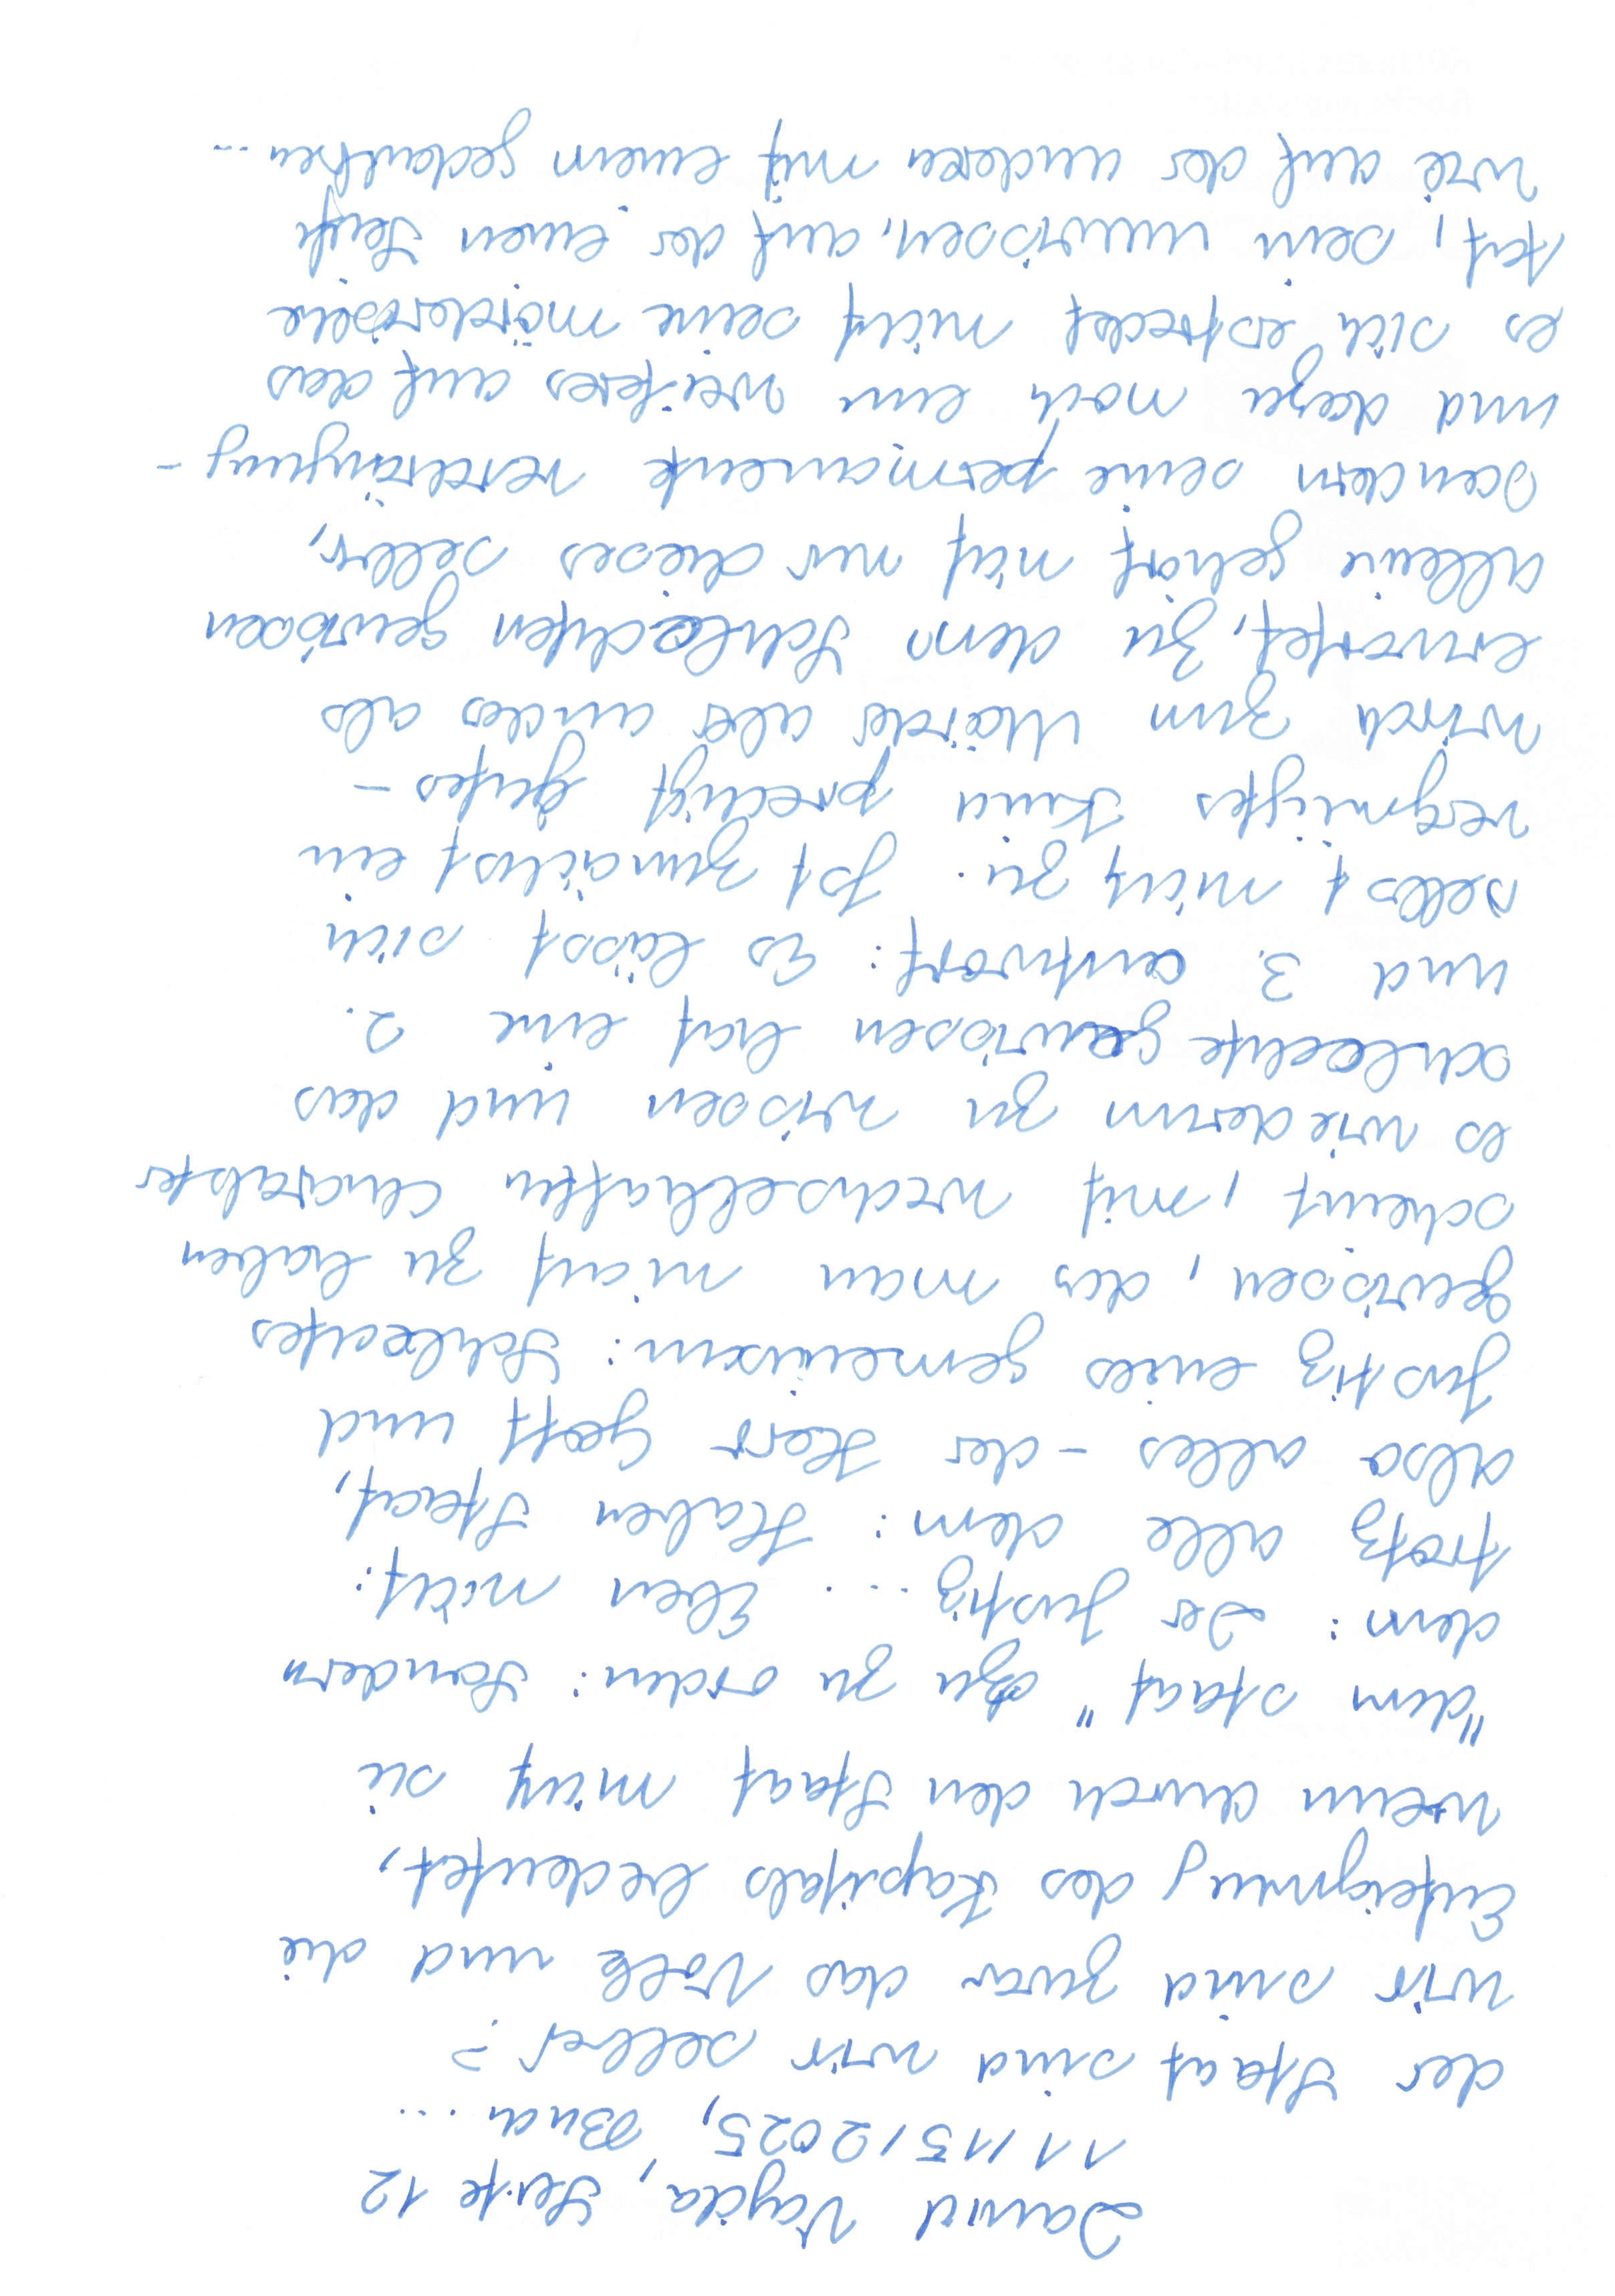 David Vajda, Seite 12
11/15/2025, Buch ...
der Staat sind wir selber?
wir sind zwar das Volk und die
Enteignung des Kapitals bedeutet,
wenn durch den Staat nicht sie
"dem Staat" zu zu orden: Sondern
dem: Der Justiz... Eben nicht:
trotz alle dem: Haben Staat,
also alles - der Herr Gott und
Justiz eines gemeinsam: Schlechtes
gewissen, das man nicht zu haben
scheint, mit wechselhaften Charakter
es wiederum zu wissen und das
schlechte gewissen hat eine 2.
und 3. antwort: Es lässt sich
selbst nicht zu. Ist zunächst ein
vergnügtes Kind predigt gutes -
wird zum Mörder aber anders als
erwartet, zu dem Schlechten gewissen
alleine gehört nicht nur dieses selbst,
sondern seine permanente verdrängung -
und dazu noch ein weiteres auf das
es sich erstreckt nicht seine mörderische
tat, sein unwissen, auf der einen Seite
wie auf der anderen mit einem gedanken ...